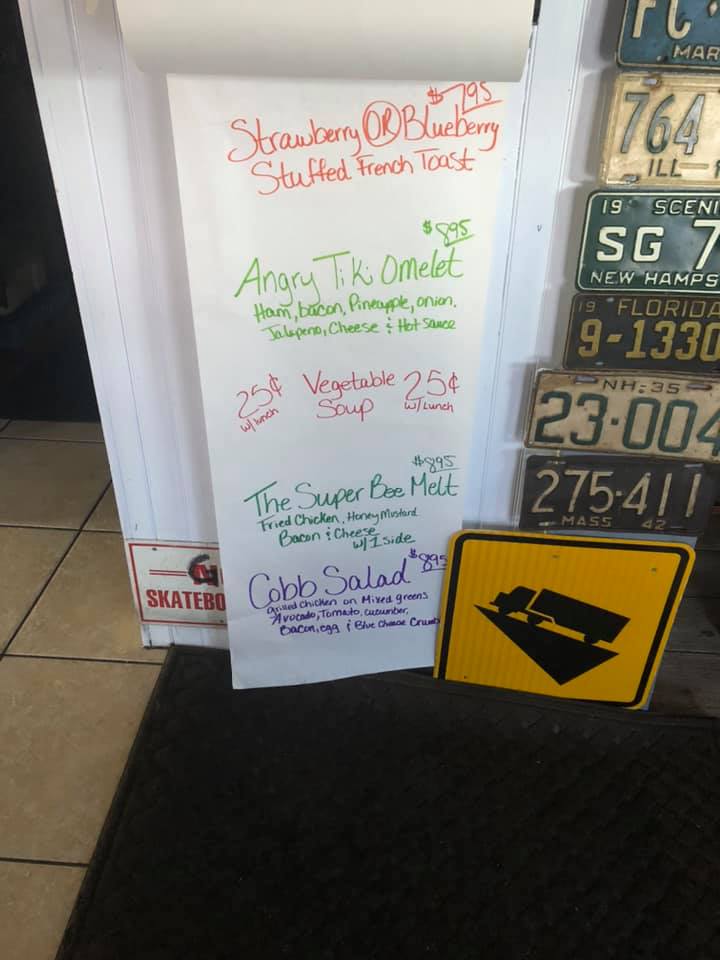 $ 795
Strawberry OR Blueberry
Stuffed French Toast
$ 895
Angry Tiki Omelet
Ham, bacon, Pineapple, onion,
Jalapeno, Cheese & Hot Sauce
25¢ Vegetable 25¢
w/lunch Soup w/Lunch
$895
The Super Bee Melt
Fried Chicken, Honey Mustard
Bacon & Cheese
w/1 side
Cobb Salad $895
grilled chicken on Mixed greens
Avocado, Tomato, cucumber,
Bacon, egg & Blue Cheese Crumb
SKATEBO
FC
MAR
764
ILL
19 SCENI
SG 7
NEW HAMPS
19 FLORIDA
9-1330
NH-35
23-004
275-411
MASS 42